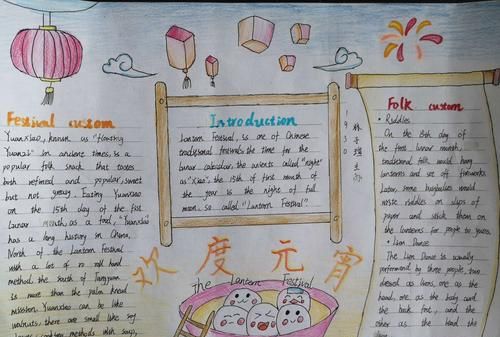 Festival custom
Yuanxiao, known as "floating
Yuanzi" in ancient times, is a
popular folk snack that tastes
both refined and popular, sweet
but not greasy. Eating Yuanxiao
on the 15th day of the first
lunar month, as a food, "Yuanxiao"
has a long history in China,
North of the Lantern Festival
with a lot of no roll hand
method, the south of Tangyuan
is more than the palm knead
mission. Yuanxiao can be like
walnuts, there are small like soy
cooking methods with soup,
Introduction
Lantern Festival, is one of Chinese
traditional festivals the time for the
lunar calendar, the ancients called "night"
as "Xiao", the 15th of first month of
the year is the night of full
moon, so called "Lantern Festival".
Folk custom
• Riddles
On the 15th day of
the first lunar month,
traditional folk would hang
lanterns and set off fireworks
Later, some
write riddles on slips of
paper and stick them on
the lanterns for people to guess.
• Lion Dance
The Lion Dance is usually
performed by three people, two
dressed as lions, one as the
head, one as the body and
the back feet, and the
other as the lion
欢度元宵
the Lantern Festival